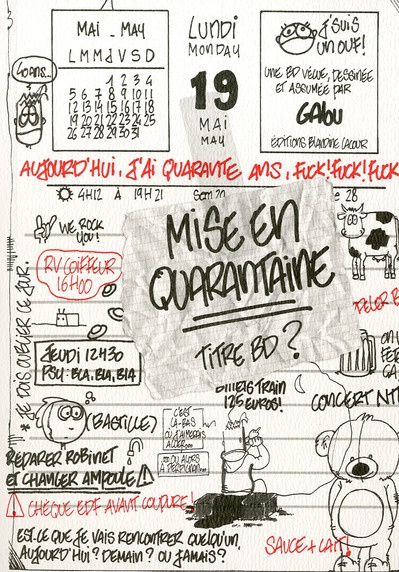 MAI - MAY
L M M J V S D
1 2 3 4
5 6 7 8 9 10 11
12 13 14 15 16 17 18
19 20 21 22 23 24 25
26 27 28 29 30 31
LUNDI
MONDAY
19
MAI
MAY
J'SUIS
UN OUF!
UNE BD VÉCUE, DESSINÉE
ET ASSUMÉE PAR
GABU
ÉDITIONS BLANDINE LACOUR
40 ANS...
AUJOURD'HUI, J'AI QUARANTE ANS, FUCK! FUCK! FUCK
4H12 À 19H21
28
WE ROCK
YOU!
RV COIFFEUR
16H00
MISE EN
QUARANTAINE
TITRE BD?
JEUDI 12H30
PSY: BLA, BLA, BLA
* JE DOIS ENLEVER CE JOUR.
BILLETS TRAIN
125 EUROS!
CONCERT NTM
(BASTILLE)
C'EST
LÀ-BAS
OÙ J'AIMERAIS
ALLER...
... OU ALORS
À PERPIGNAN...
RÉPARER ROBINET
ET CHANGER AMPOULE
CHÈQUE EDF AVANT COUPURE!
EST-CE QUE JE VAIS RENCONTRER QUELQU'UN,
AUJOURD'HUI? DEMAIN? OU JAMAIS?
SAUCE + LAIT!